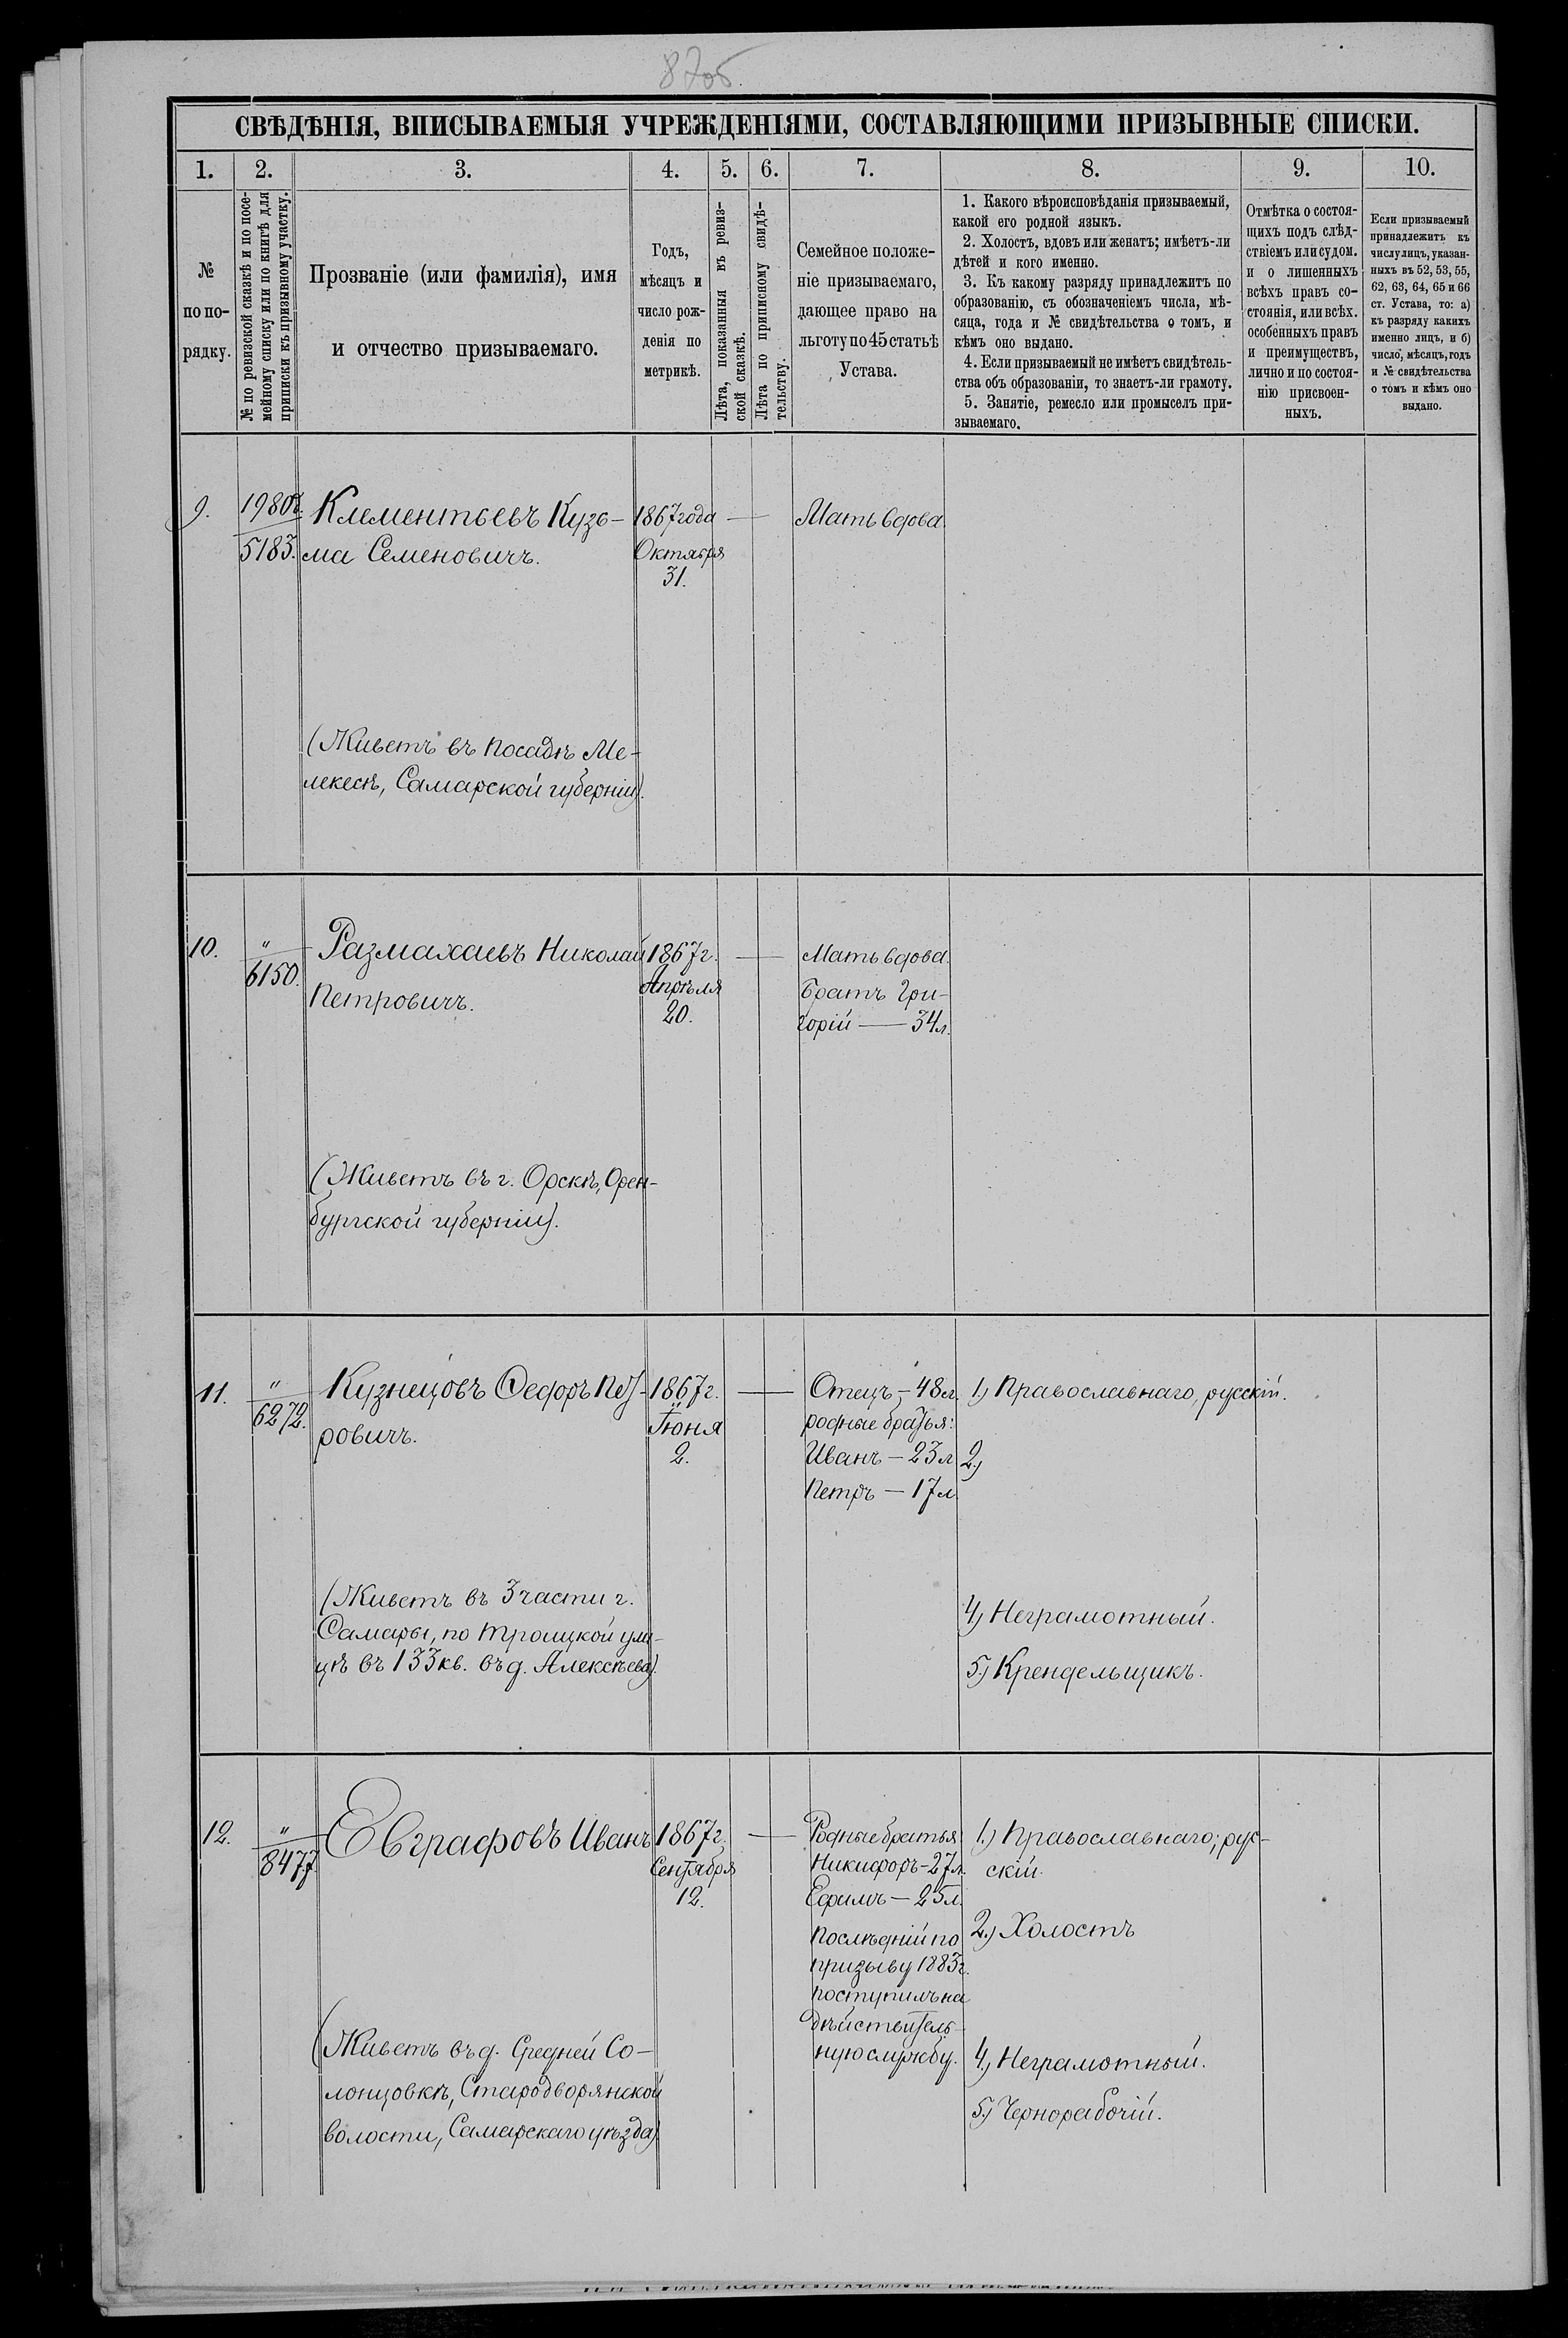 87об.
СВѢДѢНІЯ, ВПИСЫВАЕМЫЯ УЧРЕЖДЕНІЯМИ, СОСТАВЛЯЮЩИМИ ПРИЗЫВНЫЕ СПИСКИ.
1. 2. 3. 4. 5. 6. 7. 8. 9. 10.
№
по по-
рядку.
№ по ревизской сказкѣ и по посе-
мейному списку или по книгѣ для
приписки къ призывному участку.
Прозваніе (или фамилія), имя
и отчество призываемаго.
Годъ,
мѣсяцъ и
число рож-
денія по
метрикѣ.
Лѣта, показанныя въ ревиз-
ской сказкѣ.
Лѣта по приписному свидѣ-
тельству.
Семейное положе-
ніе призываемаго,
дающее право на
льготу по 45 статьѣ
Устава.
1. Какого вѣроисповѣданія призываемый,
какой его родной языкъ.
2. Холостъ, вдовъ или женатъ; имѣетъ-ли
дѣтей и кого именно.
3. Къ какому разряду принадлежитъ по
образованію, съ обозначеніемъ числа, мѣ-
сяца, года и № свидѣтельства о томъ, и
кѣмъ оно выдано.
4. Если призываемый не имѣетъ свидѣтель-
ства объ образованіи, то знаетъ-ли грамоту.
5. Занятіе, ремесло или промыселъ при-
зываемаго.
Отмѣтка о состоя-
щихъ подъ слѣд-
ствіемъ или судом.
и о лишенныхъ
всѣхъ правъ со-
стоянія, или всѣх.
особенныхъ правъ
и преимуществъ,
лично и по состоя-
нію присвоен-
ныхъ.
Если призываемый
принадлежитъ къ
числу лицъ, указан-
ныхъ въ 52, 53, 55,
62, 63, 64, 65 и 66
ст. Устава, то: а)
къ разряду какихъ
именно лицъ, и б)
число, мѣсяцъ, годъ
и № свидѣтельства
о томъ и кѣмъ оно
выдано.
9.
5183.
Клементьевъ Кузь-
ма Семеновичъ.
1867 года
Октября
31.
Мать вдова
(Живетъ въ посадѣ Ме-
лекесѣ, Самарской губерніи).
10.
"
6150.
Размахаевъ Николай
Петровичъ.
1867 г.
Апрѣля
20.
Мать вдова.
Братъ Гри-
горій — 34 л.
(Живетъ въ г. Орскѣ, Орен-
бургской губерніи).
11.
"
6272.
Кузнецовъ Ѳедоръ Пет-
ровичъ.
1867 г.
Іюня
2.
Отецъ — 48 л.
родные братья:
Иванъ — 23 л.
Петръ — 17 л.
1.) Православнаго, русскій.
2.)
4.) Неграмотный.
5.) Крендельщикъ.
(Живетъ въ 3 части г.
Самары, по Троицкой ули-
цѣ въ 133 кв. въ д. Алексѣева).
12.
"
8477.
Евграфовъ Иванъ
1867 г.
Сентября
12.
Родные братья
Никифоръ — 27 л.
Ефимъ — 25 л.
Послѣдній по
призыву 1883 г.
поступилъ на
дѣйствитель-
ную службу.
1.) Православнаго; рус-
скій.
2.) Холостъ
4.) Неграмотный.
5.) Чернорабочій.
(Живетъ въ д. Средней Со-
лонцовкѣ, Стародворянской
волости, Самарскаго уѣзда)